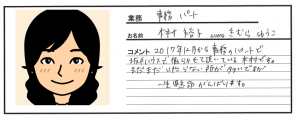 業務 事務 パート
お名前 木村 裕子 ふりがな きむら ゆうこ
コメント 2017年12月から事務のパートで
働かせて頂いている木村です。
まだまだいたらない所が多いですが
一生懸命がんばります。